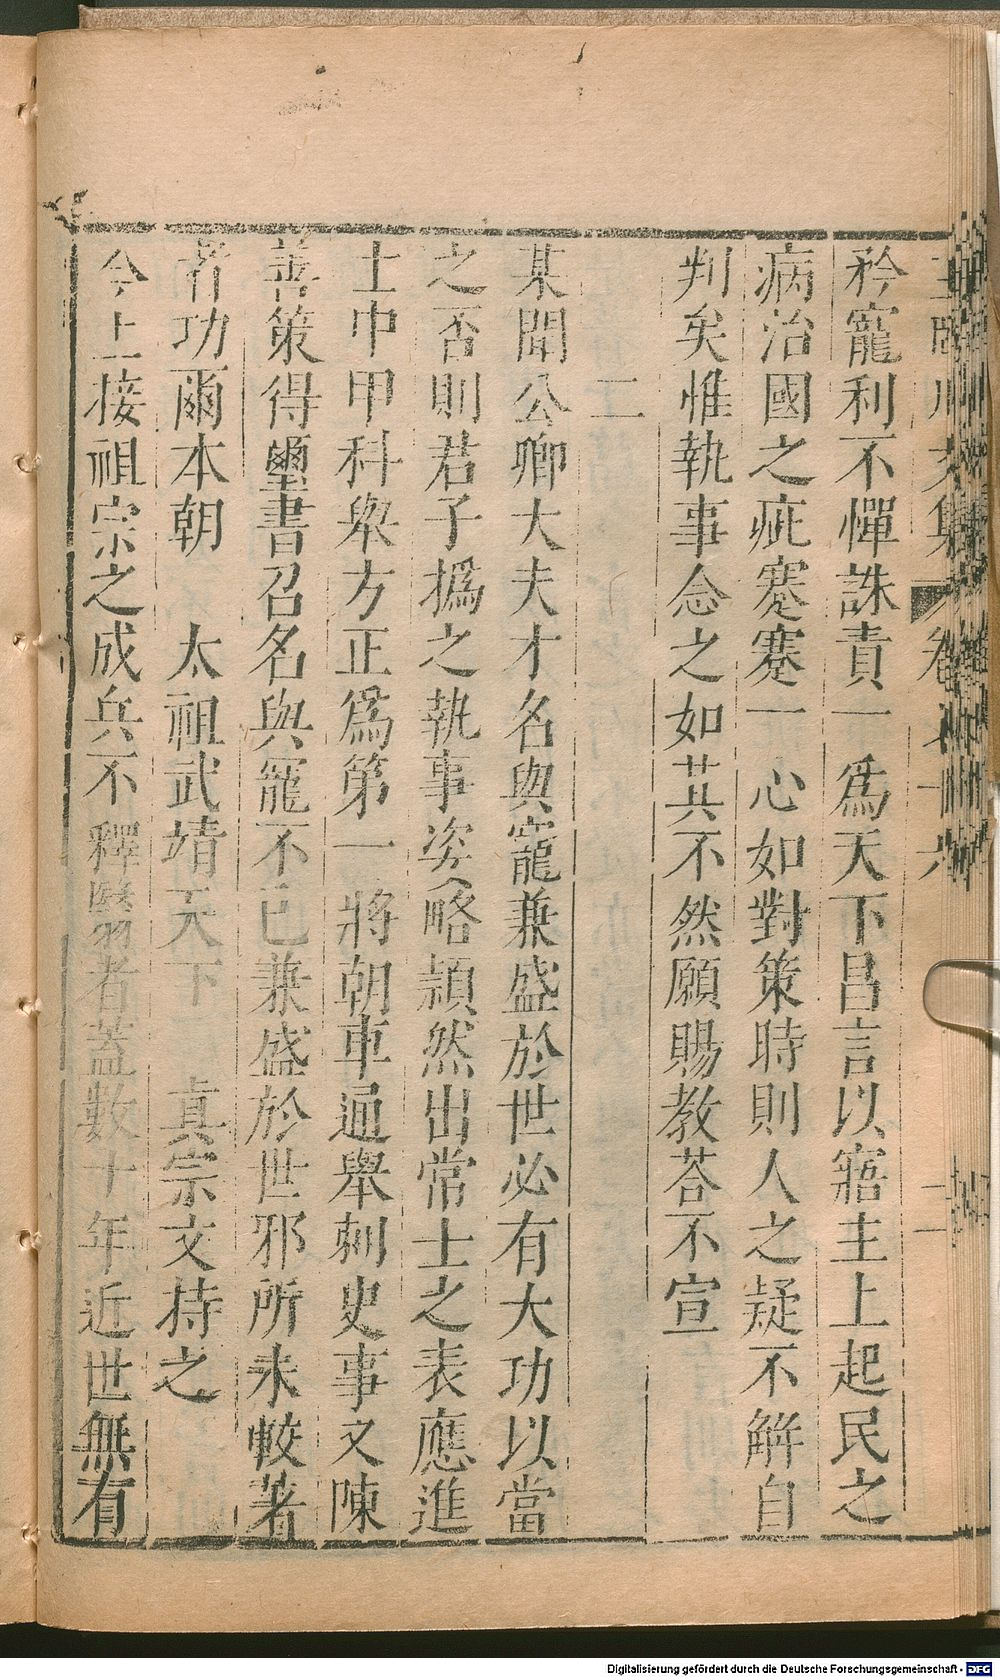 矜寵利不憚誅責一爲天下昌言以寤主上起民之
病治國之疵蹇蹇一心如對策時則人之疑不解自
判矣惟執事念之如其不然願賜教荅不宣
二
某聞公卿大夫才名與寵兼盛於世必有大功以當
之否則君子撝之執事姿略頴然出常士之表應進
士中甲科舉方正爲第一將朝車通舉刺史事文陳
善策得璽書召名與寵不已兼盛於世邪所未較著
者功爾本朝 太祖武靖天下 真宗文持之
今上接祖宗之成兵不釋翳者蓋數十年近世無有
Digitalisierung gefördert durch die Deutsche Forschungsgemeinschaft - DFG